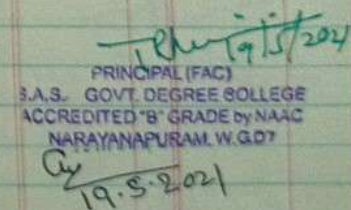 19/5/2021
PRINCIPAL (FAC)
S.A.S. GOVT. DEGREE COLLEGE
ACCREDITED "B" GRADE by NAAC
NARAYANAPURAM, W.G.DT
19.5.2021